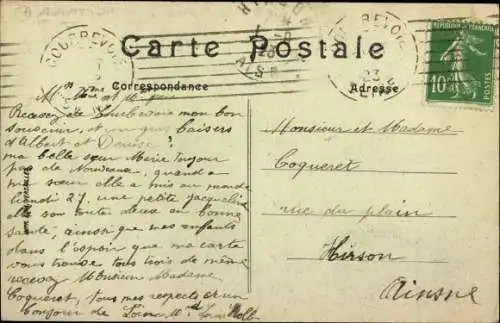 COURBEVOIE
HIRSON
COURBEVOIE
RÉPUBLIQUE FRANÇAISE
10c
POSTES
Carte Postale
Correspondance
Adresse
Mr Mme et
Recevez de Courbevoie mon bon
souvenir, et un gros baisers
d'Albert et Denise
ma belle seur Marie Toujour
pas de Nouveaux, quand a
ma sœur elle a mis au monde
lundi 27, une petite Jacqueline
elle son toute deux en bonne
santé, ainsi que mes enfants
dans l'espoir que ma carte
vous trouve tous trois de même
recevez Monsieur Madame
Coqueret, tous mes respects et un
Bonjour de
Monsieur et Madame
Coqueret
rue du plain
Hirson
Ainsne